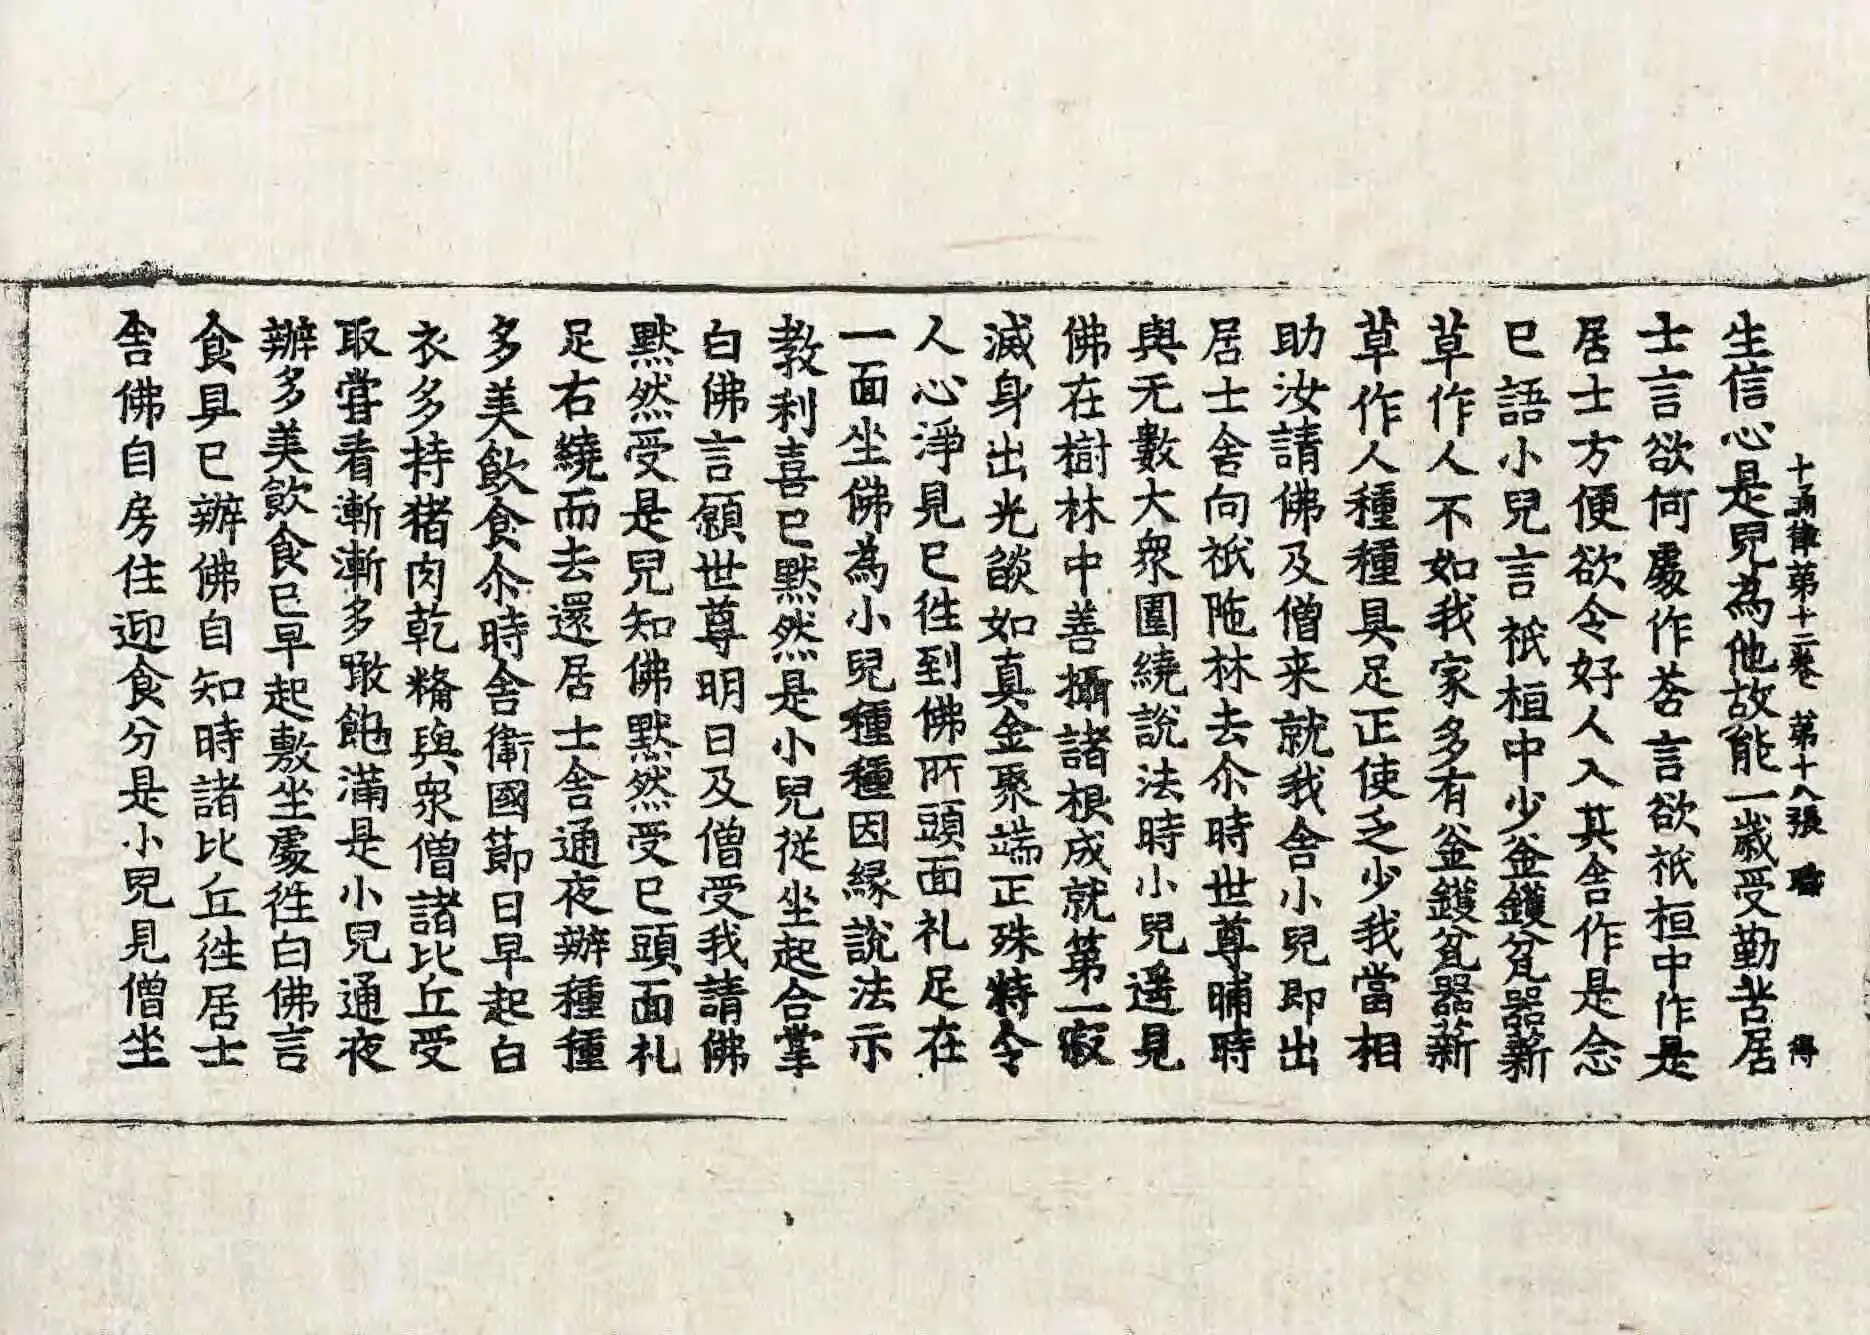 十誦律第十二卷 第十八張 得
生信心是兒為他故能一歲受勤苦居
士言欲何處作荅言欲祇桓中作是
居士方便欲令好人入其舍作是念
已語小兒言祇桓中少釜鑊瓫器薪
草作人不如我家多有釜鑊瓫器薪
草作人種種具足正使乏少我當相
助汝請佛及僧来就我舍小兒即出
居士舍向祇陁林去尒時世尊晡時
與无數大衆圍繞說法時小兒遥見
佛在樹林中善攝諸根成就第一寂
滅身出光燄如真金聚端正殊特令
人心淨見已徃到佛所頭面礼足在
一面坐佛為小兒種種因緣說法示
教利喜已默然是小兒從坐起合掌
白佛言願世尊明日及僧受我請佛
默然受是兒知佛默然受已頭面礼
足右繞而去還居士舍通夜辦種種
多美飲食尒時舍衛國節日早起白
衣多持猪肉乾糒與衆僧諸比丘受
取嘗看漸漸多噉飽滿是小兒通夜
辦多美飲食已早起敷坐處徃白佛言
食具已辦佛自知時諸比丘徃居士
舍佛自房住迎食分是小兒見僧坐